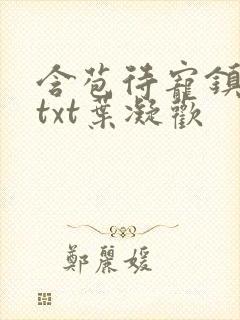 含苞待寵鎮
txt葉凝歡
鄭麗媛